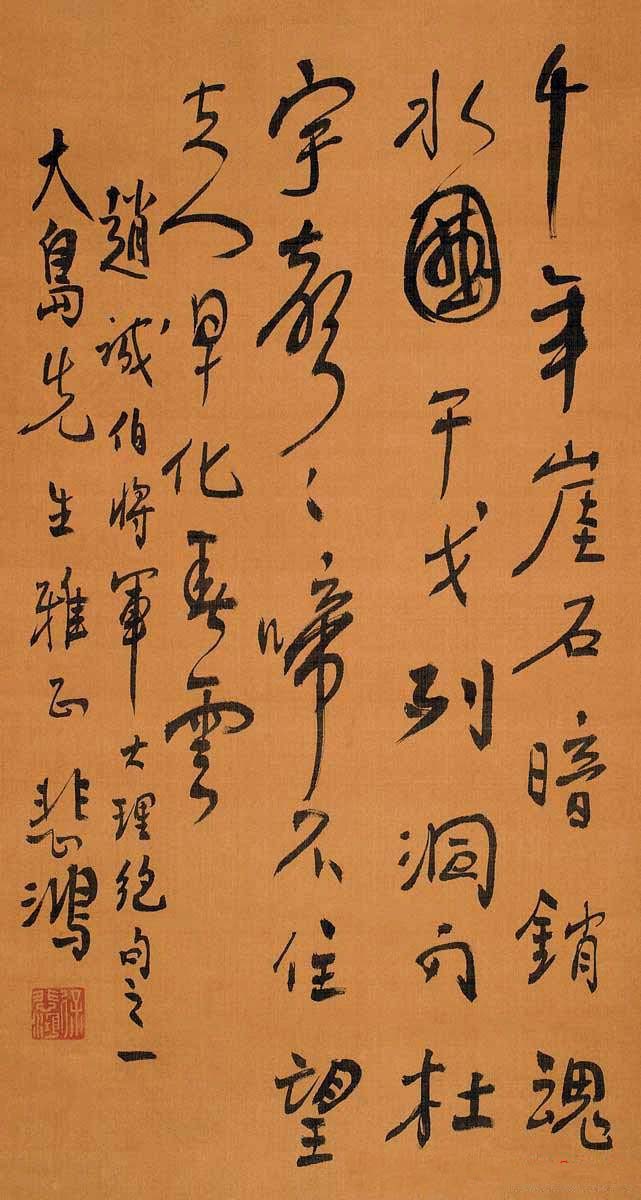 千年崖石暗銷魂
水國干戈列洞門杜
宇聲〻啼不住望
夫人早化春雲
趙誠伯將軍大理絕句之一
大島先生雅正 悲鴻